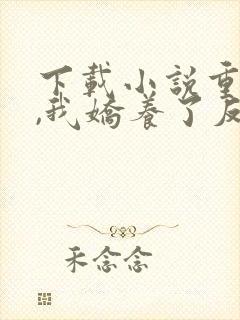 下載小説重
,我嬌養了反
禾念念